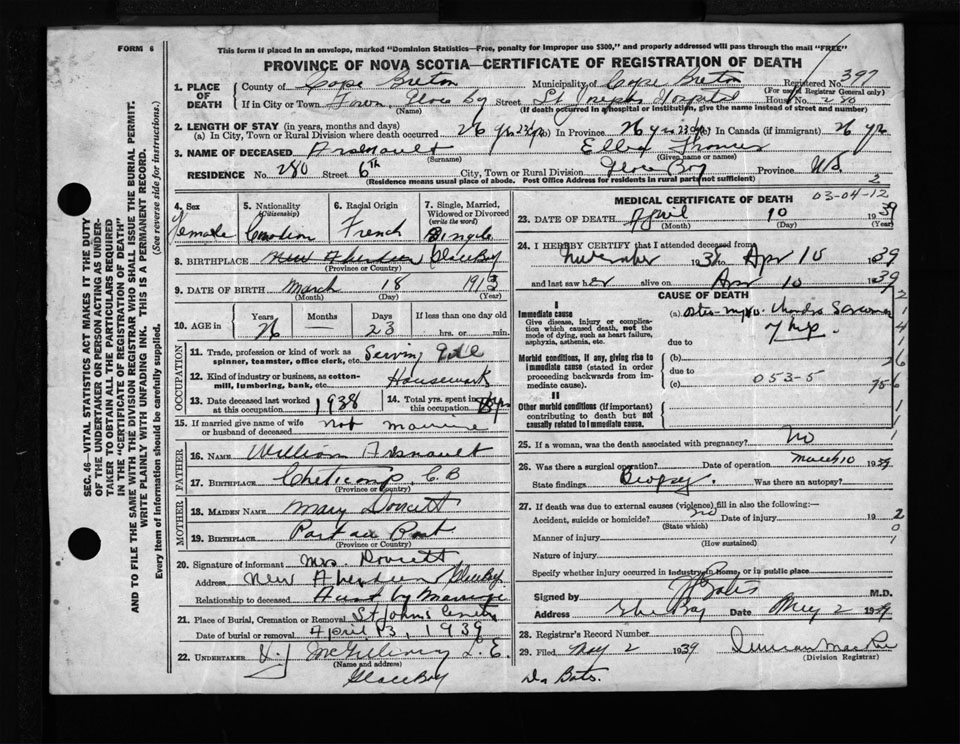 FORM 6
This form if placed in an envelope, marked "Dominion Statistics—Free, penalty for improper use $300," and properly addressed will pass through the mail "FREE"
PROVINCE OF NOVA SCOTIA—CERTIFICATE OF REGISTRATION OF DEATH
Registered No. 397
(For use of Registrar General only)
1. PLACE OF DEATH
County of Cape Breton Municipality of Cape Breton
If in City or Town Town Glace Bay Street St Josephs Hospital House No. 280
(Name) (If death occurred in a hospital or institution, give the name instead of street and number)
2. LENGTH OF STAY (in years, months and days)
(a) In City, Town or Rural Division where death occurred 26 yrs In Province 26 yrs In Canada (if immigrant) 26 yrs
3. NAME OF DECEASED Arsenault
(Surname) (Given name or names)
RESIDENCE No. 280 Street 6th City, Town or Rural Division Glace Bay Province N.S.
(Residence means usual place of abode. Post Office Address for residents in rural parts not sufficient) 2
4. Sex Female
5. Nationality (Citizenship) Canadian
6. Racial Origin French
7. Single, Married, Widowed or Divorced (write the word) Single
8. BIRTHPLACE New Aberdeen Glace Bay
(Province or Country)
9. DATE OF BIRTH March 18 1913
(Month) (Day) (Year)
10. AGE in Years 26 Months — Days 23 If less than one day old hrs. or min.
OCCUPATION
11. Trade, profession or kind of work as spinner, teamster, office clerk, etc.
12. Kind of industry or business, as cotton-mill, lumbering, bank, etc. Housework
13. Date deceased last worked at this occupation 1938
14. Total yrs. spent in this occupation
15. If married give name of wife or husband of deceased not
FATHER
16. NAME William Arsnault
17. BIRTHPLACE Cheticamp, C.B
(Province or Country)
MOTHER
18. MAIDEN NAME Mary
19. BIRTHPLACE
(Province or Country)
20. Signature of informant Mrs.
Address New Aberdeen Glace Bay
Relationship to deceased Aunt by Marriage
21. Place of Burial, Cremation or Removal St Johns
Date of burial or removal April 13, 1939
22. UNDERTAKER
(Name and address)
Glace Bay
MEDICAL CERTIFICATE OF DEATH
03-04-12
23. DATE OF DEATH April 10 1939
(Month) (Day)
24. I HEREBY CERTIFY that I attended deceased from
November 1938 to Apr 10 1939
and last saw her alive on Apr 10 1939
CAUSE OF DEATH
I
Immediate cause
Give disease, injury or complication which caused death, not the mode of dying, such as heart failure, asphyxia, asthenia, etc.
(a)
due to
Morbid conditions, if any, giving rise to immediate cause (stated in order proceeding backwards from immediate cause).
(b)
due to
(c) 053-5
II
Other morbid conditions (if important) contributing to death but not causally related to immediate cause.
25. If a woman, was the death associated with pregnancy? No
26. Was there a surgical operation? Date of operation March 10 1939
State findings Biopsy. Was there an autopsy?
27. If death was due to external causes (violence) fill in also the following:—
Accident, suicide or homicide? no Date of injury 19
(State which)
Manner of injury
(How sustained)
Nature of injury
Specify whether injury occurred in industry, in home, or in public place
Signed by M.D.
Address Glace Bay Date May 2 1939
28. Registrar's Record Number
29. Filed May 2 1939 Duncan MacRae
(Division Registrar)
Dr Bates.
SEC. 46—VITAL STATISTICS ACT MAKES IT THE DUTY OF THE UNDERTAKER OR PERSON ACTING AS UNDERTAKER TO OBTAIN ALL THE PARTICULARS REQUIRED IN THE "CERTIFICATE OF REGISTRATION OF DEATH" AND TO FILE THE SAME WITH THE DIVISION REGISTRAR WHO SHALL ISSUE THE BURIAL PERMIT.
WRITE PLAINLY WITH UNFADING INK. THIS IS A PERMANENT RECORD.
Every item of information should be carefully supplied. (See reverse side for instructions.)